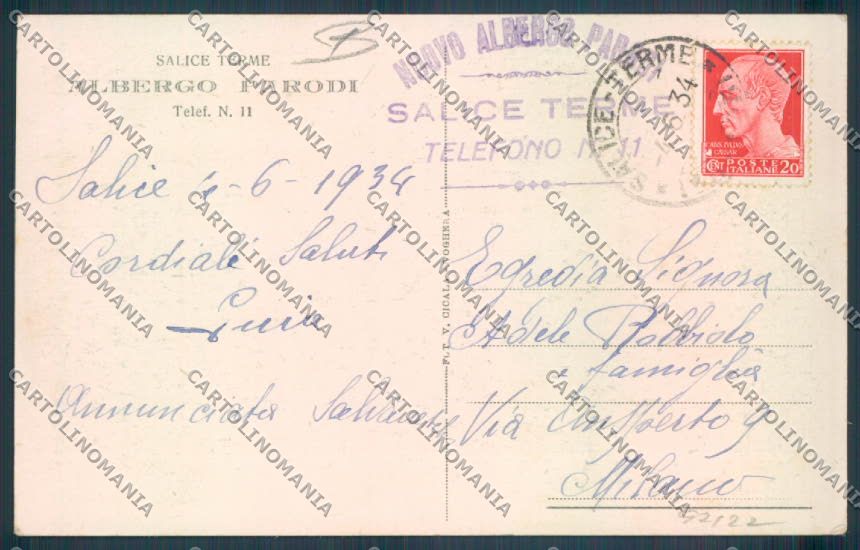 SALICE TERME
ALBERGO PARODI
Telef. N. 11
NUOVO ALBERGO PARODI
SALICE TERME
TELEFONO N. 11
SALICE-TERME
34
POSTE ITALIANE
CENT 20
Salice 4-6-1934
Cordiali Saluti
Annunciata
F.LT V. CICALA VOGHERA
Egregia Signora
Adele Robbiolo
e famiglia
Via Umberto 9
Milano
42122
CARTOLINOMANIA